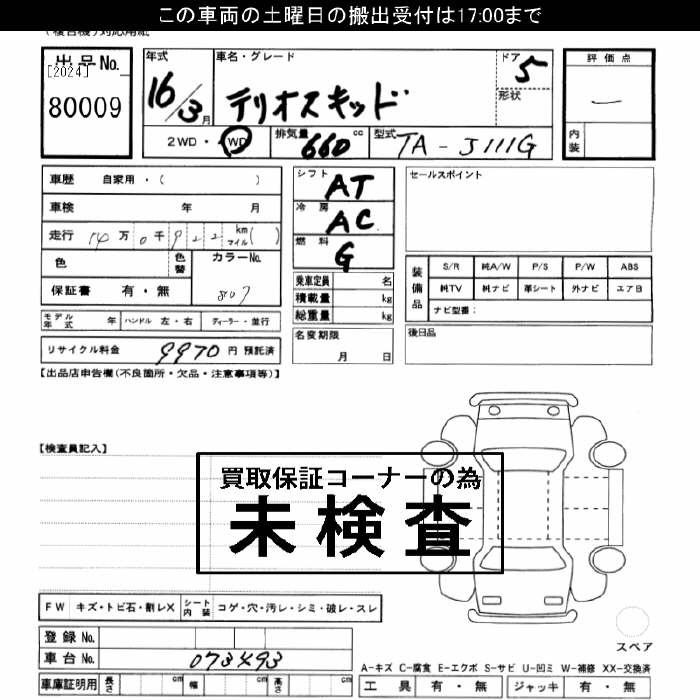 この車両の土曜日の搬出受付は17:00まで
出品No.
[2024]
80009
年式
16/3月
車名・グレード
テリオスキッド
ドア
5
形状
評価点
—
内装
2WD・4WD
排気量
660 cc
型式
TA-J111G
車歴 自家用・( )
車検 年 月
走行 14万0千922 km マイル( )
色
色替
カラーNo.
807
保証書 有・無
シフト
AT
冷房
AC
燃料
G
乗車定員 名
積載量 kg
総重量 kg
セールスポイント
装備品
S/R 純A/W P/S P/W ABS
純TV 純ナビ 革シート 外ナビ エアB
ナビ型番:
モデル年式 年 ハンドル 左・右 ディーラー・並行
名変期限
月 日
後日品
リサイクル料金 9970 円 預託済
【出品店申告欄(不良箇所・欠品・注意事項等)】
【検査員記入】
買取保証コーナーの為
未検査
FW キズ・トビ石・割レX シート内装 コゲ・穴・汚レ・シミ・破レ・スレ
登録 No.
車台 No. 073493
車庫証明用 長さ cm 幅 cm 高さ cm
スペア
A-キズ C-腐食 E-エクボ S-サビ U-凹ミ W-補修 XX-交換済
工具 有・無 ジャッキ 有・無